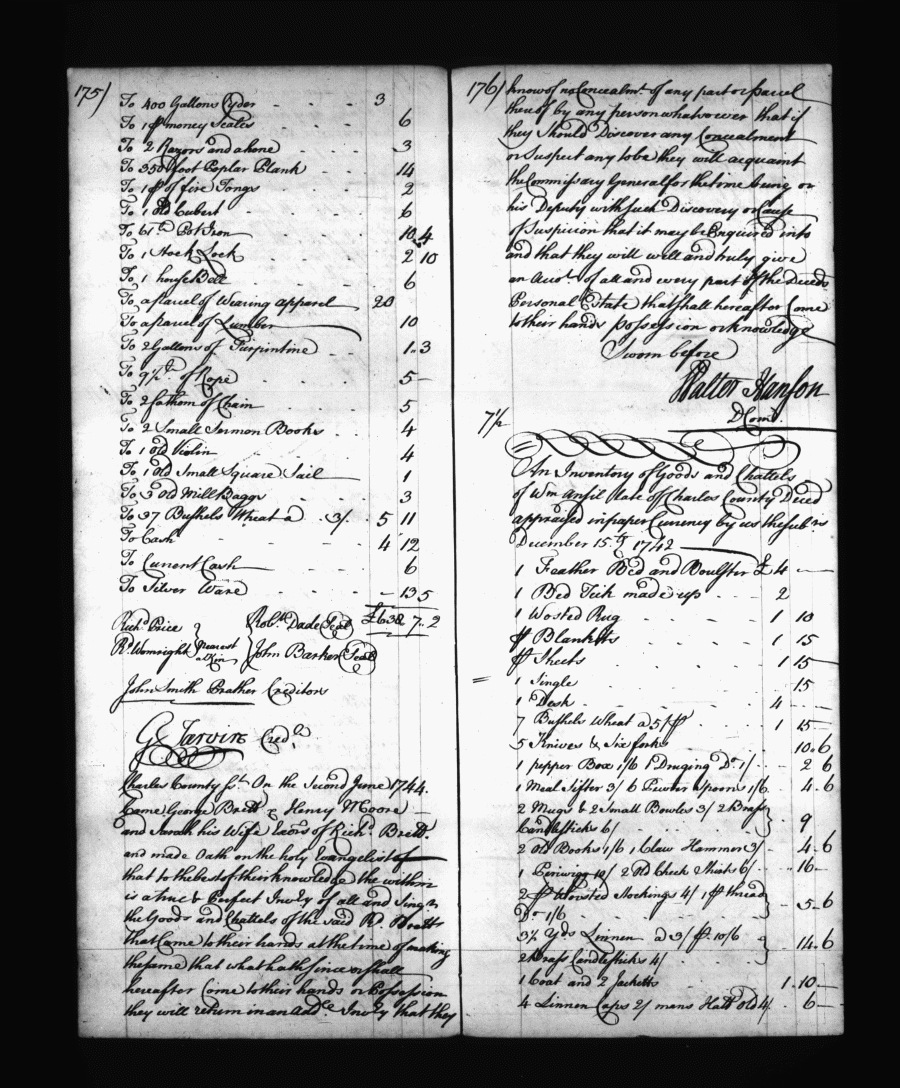 175)
To 400 Gallons Cyder 3
To 1 pr money Scales 6
To 2 Razors and a hone 3
To 350 foot Poplar Plank 14
To 1 pr of fire Tongs 2
To 1 Old Cubert 6
To 61 lb Pot Iron 10 4
To 1 Stock Lock 2 10
To 1 house Bell 6
To a parcel of Wearing apparel 20
To a parcel of Lumber 10
To 2 Gallons of Turpintine 1 3
To 9 1/2 lb of Rope 5
To 2 fathom of Chain 5
To 2 Small Sermon Books 4
To 1 old Violin 4
To 1 Old Small Square Sail 1
To 3 old Mill Baggs 3
To 37 Bushels Wheat a 3/ 5 11
To Cash 4 12
To Current Cash 6
To Silver Ware 13 5
£638 7 2
Richd Price
Rd Wemright
nearest a Kin
Robt Dade Seal
John Barker Seal
John Smith Prather Creditors
G Jarvins Credr
Charles County Sst. On the Second June 1744
Came George Brett & Henry Moore
and Sarah his Wife Exors of Richd Brett
and made Oath on the holy Evangelist of
that to the best of their knowledge the within
is a true & Perfect Invty of all and Singr
the Goods and Chattels of the said Rd Brett
that Came to their hands at the time of making
the same that what hath since or shall
hereafter Come to their hands or Possession
they will return in an Addl Invty that they
176)
know of no Concealmt of any part or parcel
thereof by any person whatsoever that if
they Should Discover any Concealment
or Suspect any to be they will acquaint
the Commissary General for the time being or
his Deputy with such Discovery or Cause
of Suspicion that it may be Enquired into
and that they will well and truly give
an Acct of all and every part of the Deceds
Personal Estate that shall hereafter Come
to their hands possession or knowledge
Sworn before
Walter Hanson
D Comy
7 1/2
An Inventory of Goods and Chattels
of Wm Ansil late of Charles County Deced
appraised in paper Currency by us the subrs
December 15th 1742
1 Feather Bed and Boulster £ 4
1 Bed Tick made up 2
1 Wosted Rug 1 10
pr Blanketts 1 15
pr Sheets 1 15
1 Single 15
1 Desk 4
7 Bushels Wheat a 5/ pr 1 15
5 Knives & Six forks 10 6
1 pepper Box 1/6 1 Druging Do 1/ 2 6
1 Meal Sifter 3/ 6 Pewter Spoons 1/6 4 6
2 Mugs & 2 Small Bowles 3/ 2 Brass
Candlesticks 6/ 9
2 Old Books 1/6 1 Claw Hammer 3/ 4 6
1 Periwige 10/ 2 Old Check Shirts 6/ 16
2 pr Worsted Stockings 4/ 1 pr thread
Do 1/6 5 6
3 1/2 Yds Linnen a 3/ pr 10/6
2 Brass Candlesticks 4/ 14 6
1 Coat and 2 Jacketts 1 10
4 Linnen Caps 2/ mans Hatt old 4/ 6